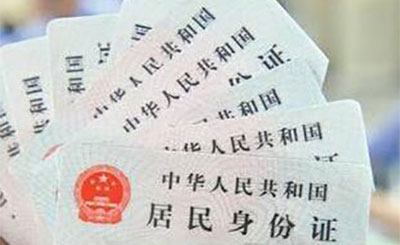 共和国
中华人民共和国
中华人民共和国
中华人民共和国
中华人民共和国
中华人民共和国
居民身份证